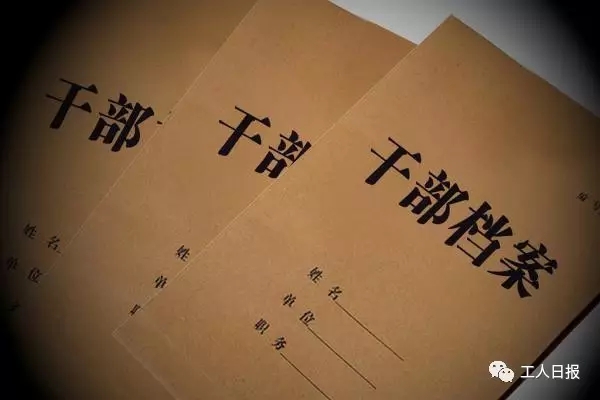 干部
姓名
单位
干部
姓
单
干部档案
编号
姓名
单位
职务
工人日报